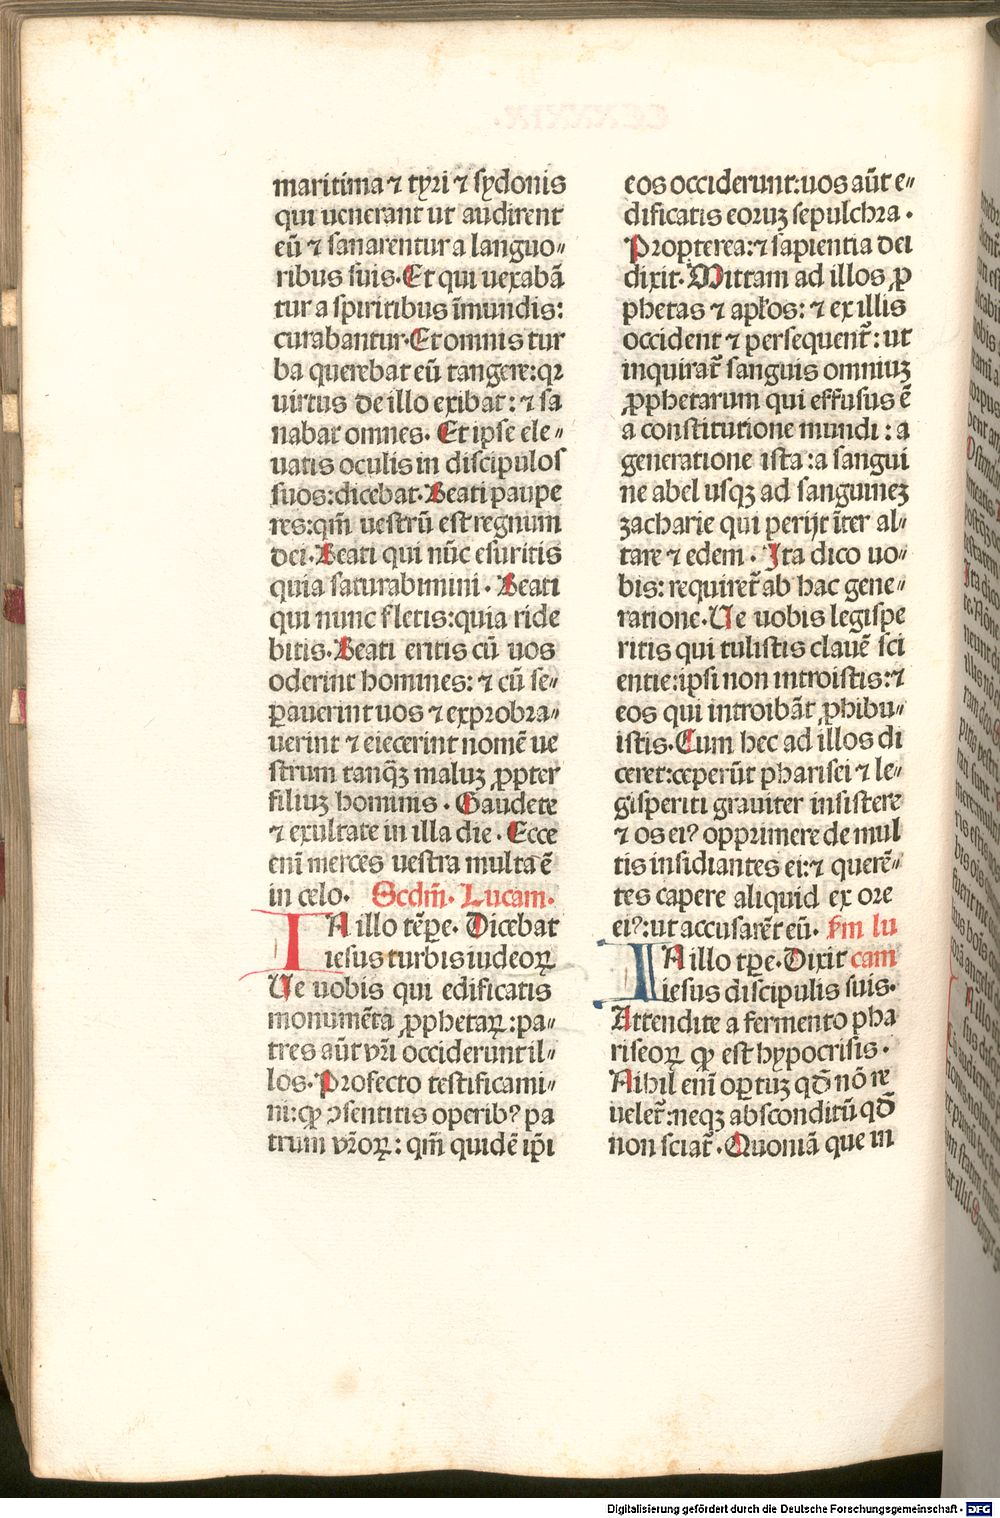 maritima ⁊ tyri ⁊ sydonis
qui uenerant ut audirent
eū ⁊ sanarentur a languo〃
ribus suis. Et qui uexabā
tur a spiritibus īmundis:
curabantur. Et omnis tur
ba querebat eū tangere: qꝛ
uirtus de illo exibat: ⁊ sa
nabat omnes. Et ipse ele〃
uatis oculis in discipulos
suos: dicebat. Beati paupe
res: qm̄ uestrū est regnum
dei. Beati qui nūc esuritis
quia saturabimini. Beati
qui nunc fletis: quia ride
bitis. Beati eritis cū uos
oderint homines: ⁊ cū se〃
ꝑauerint uos ⁊ exprobra〃
uerint ⁊ eiecerint nomē ue
strum tanqꝫ maluꝫ ꝓpter
filiuꝫ hominis. Gaudete
⁊ exultate in illa die. Ecce
enī merces uestra multa ē
in celo. Scdm̄. Lucam.
IN illo tēpe. Dicebat
iesus turbis iudeoꝝ
Ue uobis qui edificatis
monumēta ꝓphetaꝝ: pa〃
tres aūt vr̄i occiderunt il〃
los. Profecto testificami〃
ni: ꝙ ꝯsentitis operibꝰ pa
trum vr̄oꝝ: qm̄ quidē ip̄i
eos occiderunt: uos aūt e〃
dificatis eoruꝫ sepulchra.
Propterea: ⁊ sapientia dei
dixit. Mittam ad illos ꝓ
phetas ⁊ apłos: ⁊ ex illis
occident ⁊ persequent̄: ut
inquirat̄ sanguis omniuꝫ
ꝓphetarum qui effusus ē
a constitutione mundi: a
generatione ista: a sangui
ne abel usqꝫ ad sanguineꝫ
zacharie qui perijt īter al〃
tare ⁊ edem. Ita dico uo〃
bis: requiret̄ ab hac gene〃
ratione. Ue uobis legispe
ritis qui tulistis clauē sci
entie: ipsi non introistis: ⁊
eos qui introibāt ꝓhibu〃
istis. Cum hec ad illos di
ceret: ceperūt pharisei ⁊ le〃
gisperiti grauiter insistere
⁊ os eiꝰ opprimere de mul
tis insidiantes ei: ⁊ querē〃
tes capere aliquid ex ore
eiꝰ: ut accusarēt eū. ẜm lu
IN illo tꝑe. Dixit cam
iesus discipulis suis.
Attendite a fermento pha
riseoꝝ ꝙ est hypocrisis.
Nihil enī oꝑtuꝫ qđ nō re
uelet̄: neqꝫ absconditū qđ
non sciat̄. Quoniā que in
Digitalisierung gefördert durch die Deutsche Forschungsgemeinschaft - DFG